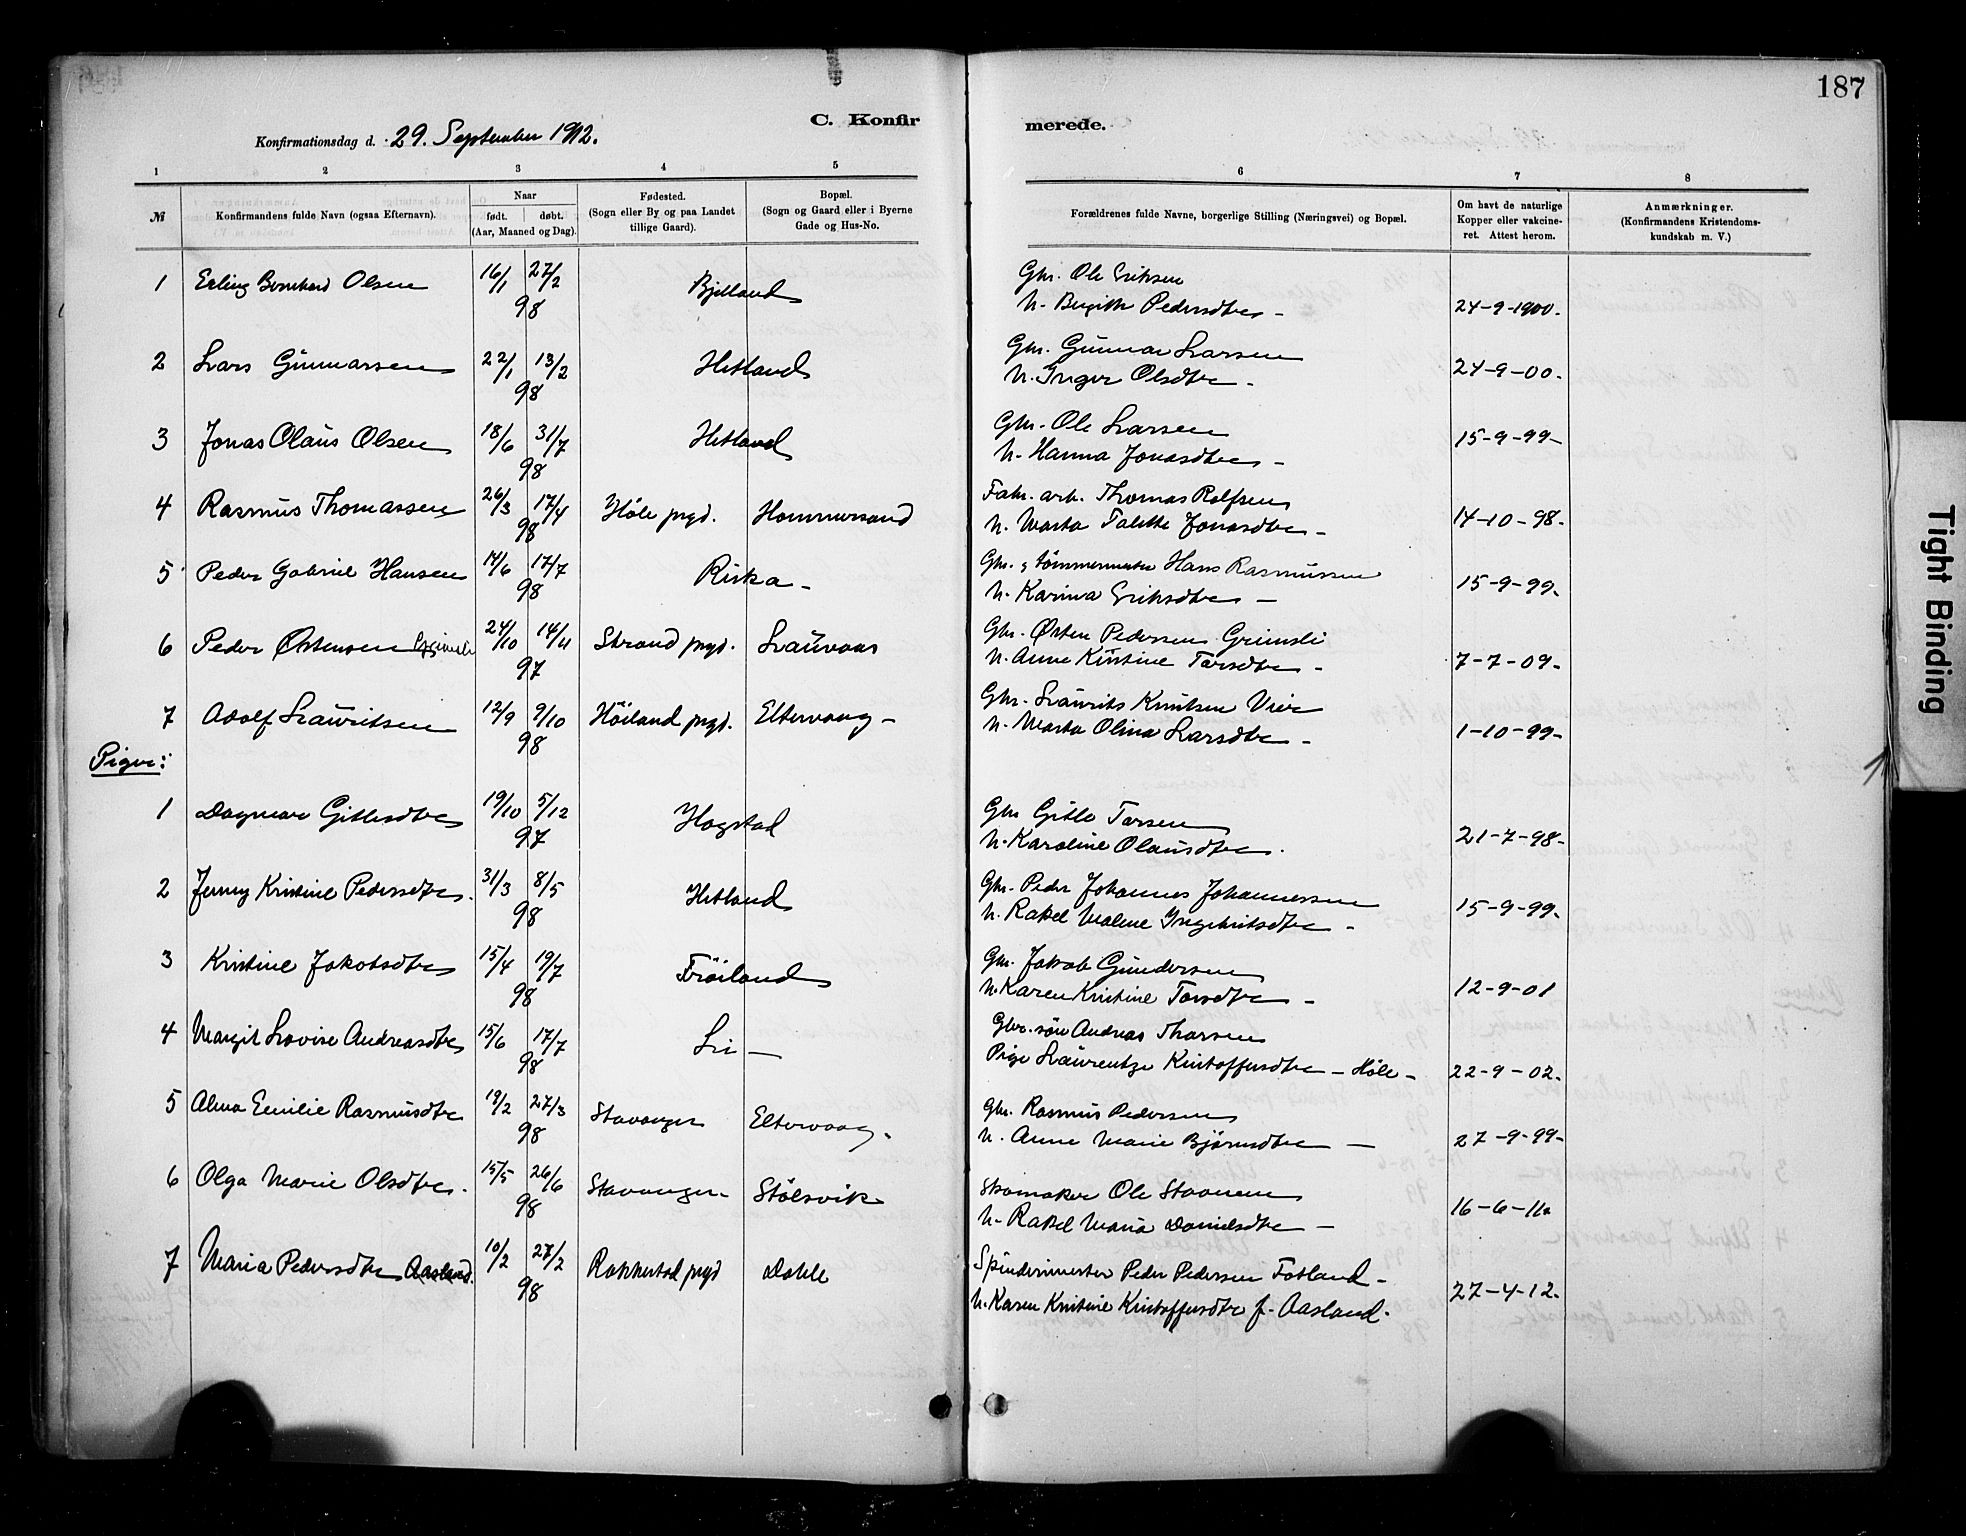 187
C. Konfirmerede.
Konfirmationsdag d. 29. September 1912.
1 2 3 4 5 6 7 8
№ Konfirmandens fulde Navn (ogsaa Efternavn). Naar født. døbt. (Aar, Maaned og Dag). Fødested. (Sogn eller By og paa Landet tillige Gaard). Bopæl. (Sogn og Gaard eller i Byerne Gade og Hus-No. Forældrenes fulde Navne, borgerlige Stilling (Næringsvei) og Bopæl. Om havt de naturlige Kopper eller vakcineret. Attest herom. Anmærkninger. (Konfirmandens Kristendomskundskab m. V.)
1 Erling Bernhard Olsen 16/1 27/2 98 Bjelland Gbr. Ole Eriksen
h. Birgithe Pedersdtr - 24-9-1900.
2 Lars Gunnarsen 22/1 13/2 98 Hetland Gbr. Gunnar Larsen
h. Inger Olsdtr - 24-9-00.
3 Jonas Olaus Olsen 18/6 31/7 98 Hetland Gbr. Ole Larsen
h. Hanna Jonasdtr - 15-9-99-
4 Rasmus Thomassen 26/3 17/4 98 Höle prgd. Hommersand Fabr. arb. Thomas Rolfsen
h. Marta Talette Jonasdtr - 14-10-98-
5 Peder Gabriel Hansen 14/6 17/7 98 Riska - Gbr. & tömmermester Hans Rasmussen
h. Karina Eriksdtr - 15-9-99-
6 Peder Østensen Grimsli 24/10 14/11 97 Strand prgd. Lauvaas Gbr. Østen Pedersen Grimsli
h. Anne Kristine Tarsdtr - 7-7-09-
7 Adolf Lauritsen 12/9 9/10 98 Höiland prgd. Eltervaag - Gbr. Laurits Knutsen Vier
h. Marta Olina Larsdtr - 1-10-99-
Piger:
1 Dagmar Gitlesdtr 19/10 5/12 97 Hogstad Gbr Gitle Tarsen
h. Karoline Olausdtr. 21-7-98-
2 Jenny Kristine Pedersdtr. 31/3 8/5 98 Hetland Gbr. Peder Johannes Johannessen
h. Rakel Malene Ingebritsdtr - 15-9-99-
3 Kristine Jakobsdtr 15/4 19/7 98 Fröiland Gbr. Jakob Gundersen
h. Karen Kristine Tarsdtr - 12-9-01
4 Margit Lovise Andreasdtr 15/6 17/7 98 Li - Gbr. søn Andreas Tharsen
Pige Laurentze Kristoffersdtr - Höle - 22-9-02.
5 Alma Emilie Rasmusdtr 19/2 27/3 98 Stavanger Eltervaag. Gbr. Rasmus Pedersen
h. Anne Marie Björnsdtr - 27-9-99-
6 Olga Marie Olsdtr. 15/5 26/6 98 Stavanger - Stölsvik Skomaker Ole Stavnem
h. Rakel Maria Danielsdtr - 16-6-11.
7 Maria Pedersdtr Aasland. 10/2 27/2 98 Rakkestad prgd Dahle Spinderimester Peder Pedersen Fotland -
h. Karen Kristine Kristoffersdtr f. Aasland. 27-4-12.
Tight Binding